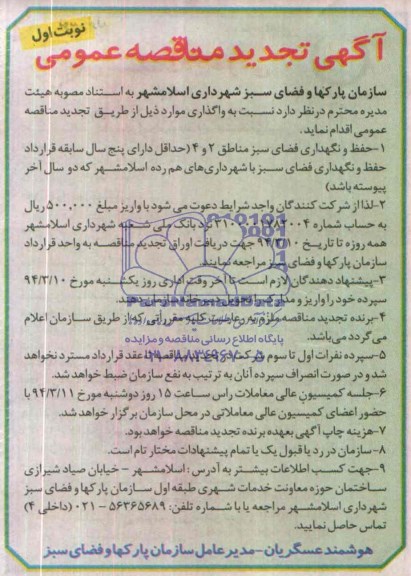 نوبت اول
آگهی تجدید مناقصه عمومی
سازمان پارکها و فضای سبز شهرداری اسلامشهر به استناد مصوبه هیئت
مدیره محترم در نظر دارد نسبت به واگذاری موارد ذیل از طریق تجدید مناقصه
عمومی اقدام نماید.
۱-حفظ و نگهداری فضای سبز مناطق ۲ و ۴ (حداقل دارای پنج سال سابقه قرارداد
حفظ و نگهداری فضای سبز با شهرداری‌های هم رده اسلامشهر که دو سال آخر
پیوسته باشد)
۲-لذا از شرکت کنندگان واجد شرایط دعوت می شود با واریز مبلغ ۵۰۰,۰۰۰ ریال
به حساب شماره نزد بانک ملی شعبه شهرداری اسلامشهر
همه روزه تا تاریخ ۹۴/۳/۱۰ جهت دریافت اوراق تجدید مناقصه به واحد قرارداد
سازمان پارکها و فضای سبز مراجعه نمایند.
۳-پیشنهاد دهندگان لازم است تا آخر وقت اداری روز یکشنبه مورخ ۹۴/۳/۱۰
سپرده خود را واریز و مدارک را تحویل دبیرخانه سازمان دهند.
۴-برنده تجدید مناقصه ملزم به رعایت کلیه مقرراتی که از طریق سازمان اعلام
می گردد می باشد.
پایگاه اطلاع رسانی مناقصه و مزایده
۵-سپرده نفرات اول تا سوم شرکت در مناقصه تا عقد قرارداد مسترد نخواهد
شد و در صورت انصراف سپرده آنان به ترتیب به نفع سازمان ضبط خواهد شد.
۶-جلسه کمیسیون عالی معاملات راس ساعت ۱۵ روز دوشنبه مورخ ۹۴/۳/۱۱ با
حضور اعضای کمیسیون عالی معاملاتی در محل سازمان برگزار خواهد شد.
۷-هزینه چاپ آگهی بعهده برنده تجدید مناقصه خواهد بود.
۸-سازمان در رد یا قبول یک یا تمام پیشنهادات مختار تام است.
۹-جهت کسب اطلاعات بیشتر به آدرس: اسلامشهر - خیابان صیاد شیرازی
ساختمان حوزه معاونت خدمات شهری طبقه اول سازمان پارکها و فضای سبز
شهرداری اسلامشهر مراجعه یا با شماره تلفن: ۵۶۳۶۵۶۸۹ - ۰۲۱ (داخلی ۴)
تماس حاصل نمایید.
هوشمند عسگریان-مدیر عامل سازمان پارکها و فضای سبز